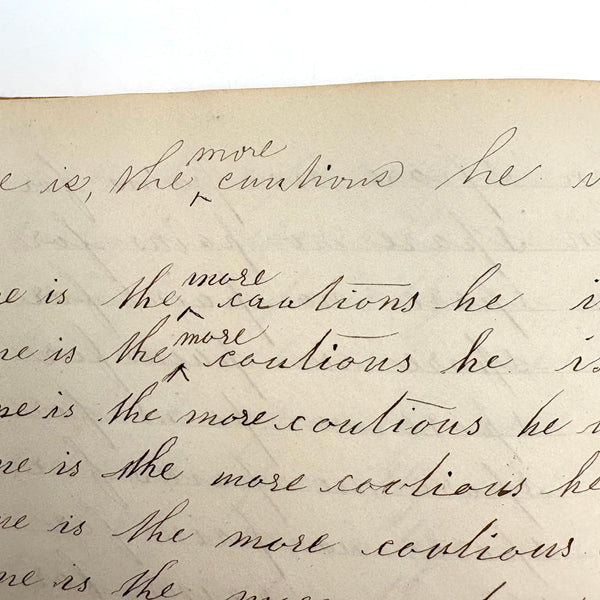 e is, the ^ more cautious he i
ne is the ^ more cautions he i
ne is the ^ more coutious he is
ne is the more coutious he i
ne is the more coutious he
ne is the more coutious
ne is the more